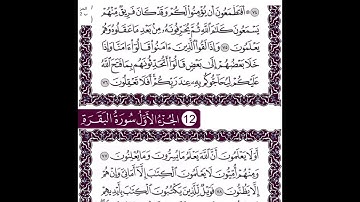 ۞ أَفَتَطْمَعُونَ أَن يُؤْمِنُوا۟ لَكُمْ وَقَدْ كَانَ فَرِيقٌ مِّنْهُمْ
يَسْمَعُونَ كَلَٰمَ ٱللَّهِ ثُمَّ يُحَرِّفُونَهُۥ مِنۢ بَعْدِ مَا عَقَلُوهُ وَهُمْ
يَعْلَمُونَ ٧٥ وَإِذَا لَقُوا۟ ٱلَّذِينَ ءَامَنُوا۟ قَالُوٓا۟ ءَامَنَّا وَإِذَا
خَلَا بَعْضُهُمْ إِلَىٰ بَعْضٍ قَالُوٓا۟ أَتُحَدِّثُونَهُم بِمَا فَتَحَ ٱللَّهُ
عَلَيْكُمْ لِيُحَآجُّوكُم بِهِۦ عِندَ رَبِّكُمْ أَفَلَا تَعْقِلُونَ ٧٦
سُورَةُ البَقَرَةِ الجُزْءُ الأَوَّلُ 12
أَوَلَا يَعْلَمُونَ أَنَّ ٱللَّهَ يَعْلَمُ مَا يُسِرُّونَ وَمَا يُعْلِنُونَ ٧٧
وَمِنْهُمْ أُمِّيُّونَ لَا يَعْلَمُونَ ٱلْكِتَٰبَ إِلَّآ أَمَانِىَّ وَإِنْ هُمْ
إِلَّا يَظُنُّونَ ٧٨ فَوَيْلٌ لِّلَّذِينَ يَكْتُبُونَ ٱلْكِتَٰبَ بِأَيْدِيهِمْ